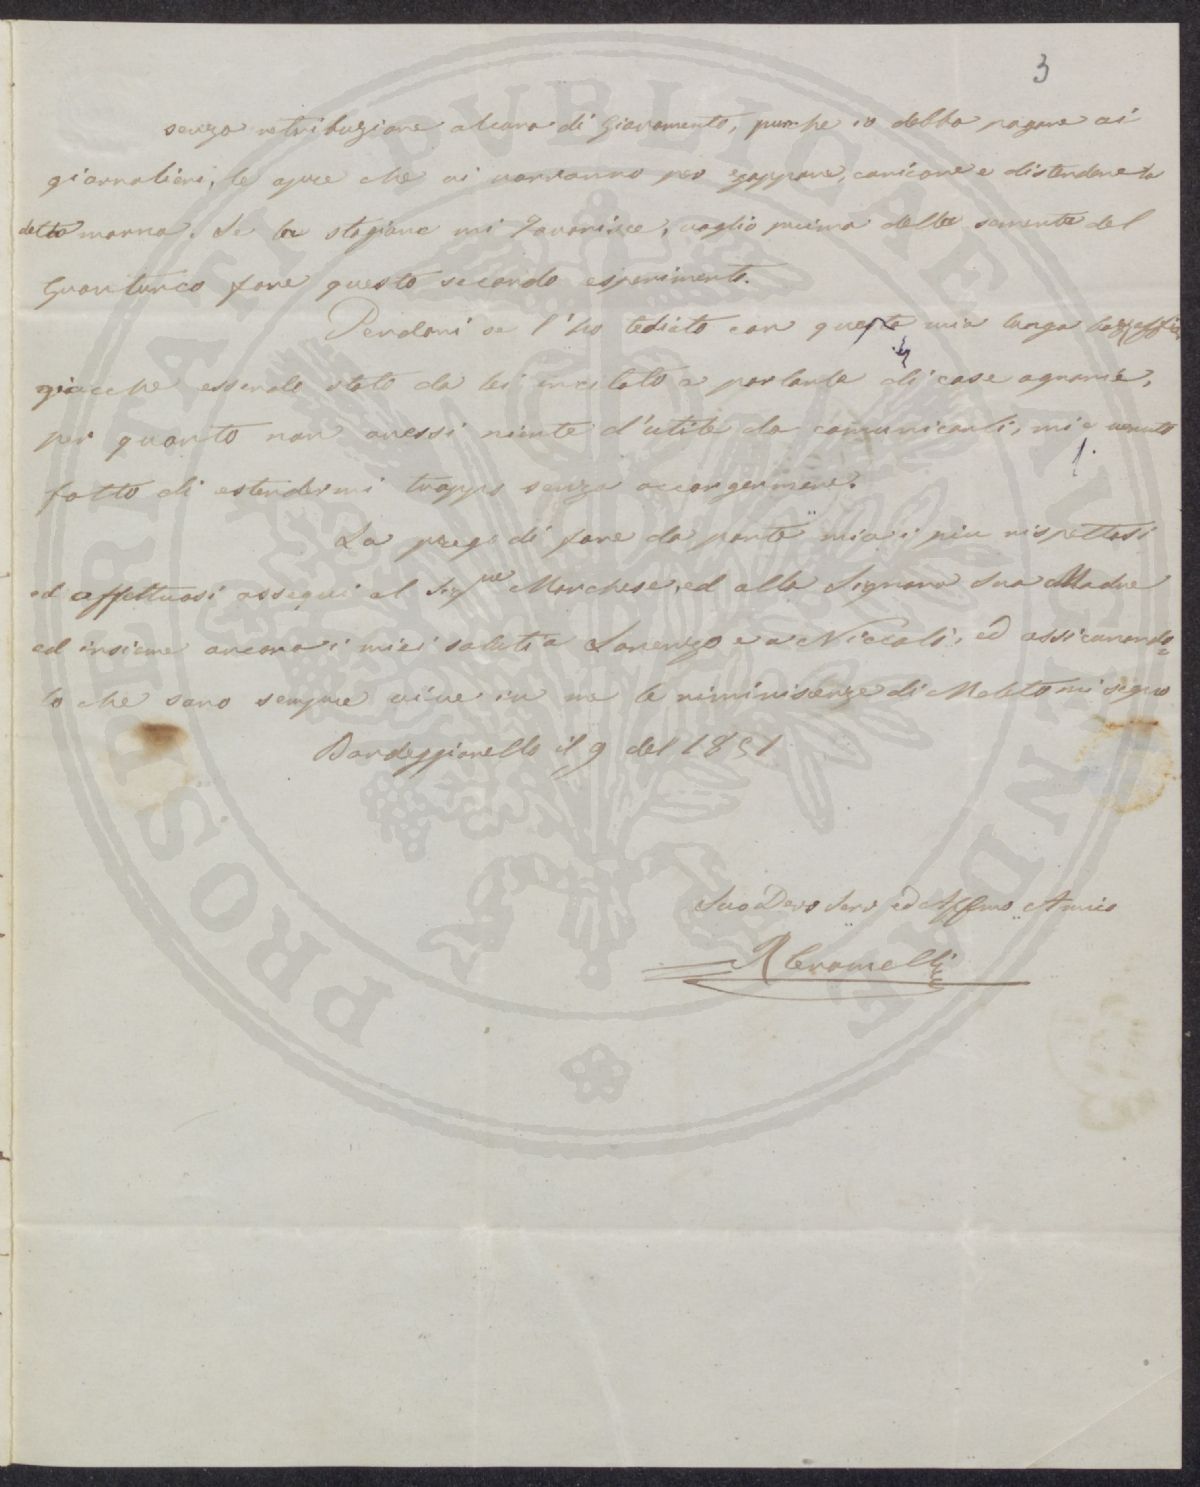 3
senza retribuzione alcuna di Giovamento, purche io debba pagare ai
giornalieri, le opre che ci vorranno per zappare, caricare e distendere la
detta marna. Se la stagione mi favorisce, voglio prima della sementa del
Granturco fare questo secondo esperimento.
Perdoni se l'ho tediato con questa mia lunga
giacche essendo stato da lei incitato a parlarle di cose agrarie,
per quanto non avessi niente d'utile da comunicarli, mi è venuto
fatto di estendermi troppo senza accorgermene.
La prego di fare da parte mia i piu rispettosi
ed affettuosi ossequi al Sigre Marchese, ed alla Signora Sua Madre
ed insieme ancora i miei saluti a Lorenzo e a Niccolò, ed assicurando=
lo che sono sempre vive in me le riminiscenze di Meleto mi segno
il 9 del 1851
Suo Devo Servo ed Affmo Amico
PROSPERITATI PUBLICAE AUGENDAE